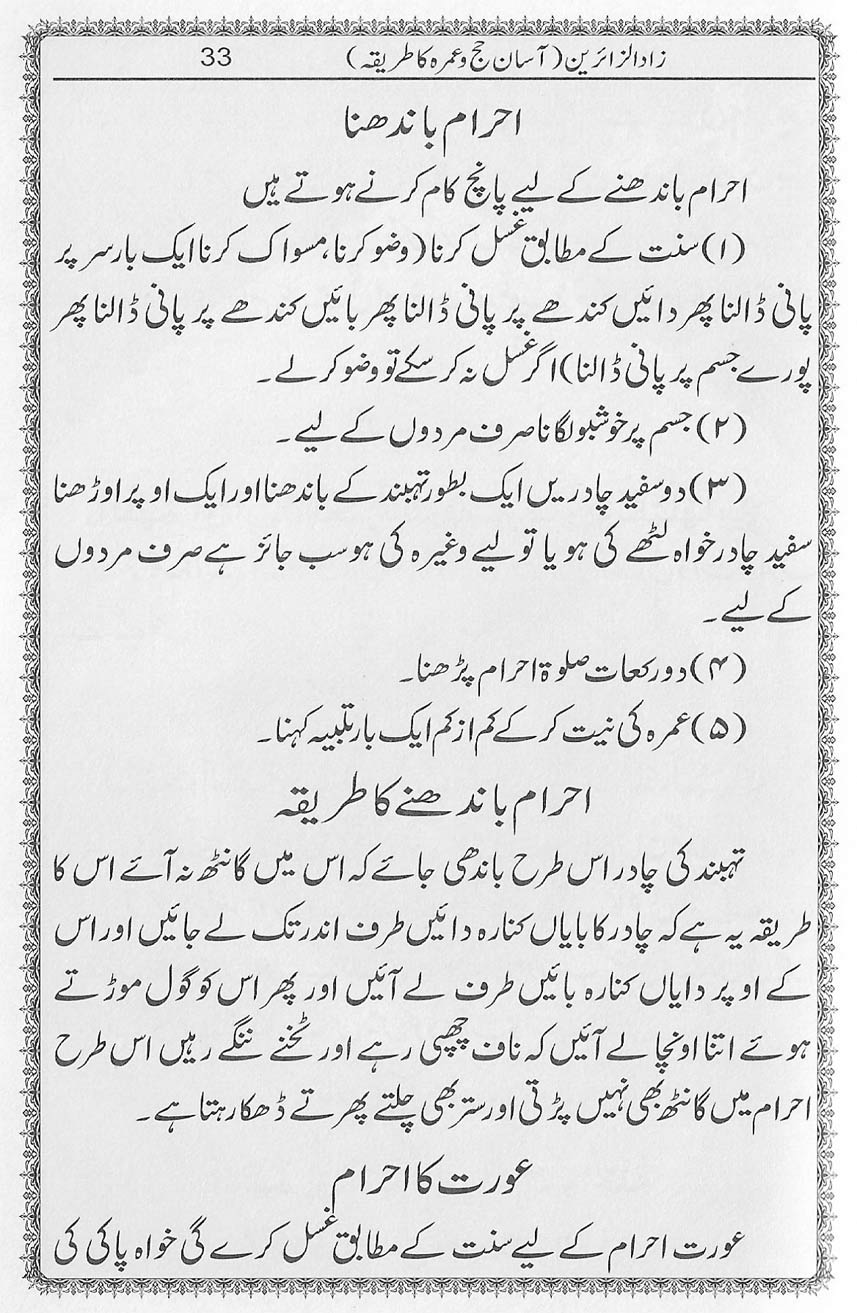 زاد الزائرین (آسان حج و عمرہ کا طریقہ) 33
احرام باندھنا
احرام باندھنے کے لیے پانچ کام کرنے ہوتے ہیں
(۱) سنت کے مطابق غسل کرنا (وضو کرنا، مسواک کرنا ایک بار سر پر
پانی ڈالنا پھر دائیں کندھے پر پانی ڈالنا پھر بائیں کندھے پر پانی ڈالنا پھر
پورے جسم پر پانی ڈالنا) اگر غسل نہ کر سکے تو وضو کر لے۔
(۲) جسم پر خوشبو لگانا صرف مردوں کے لیے۔
(۳) دو سفید چادریں ایک بطور تہبند کے باندھنا اور ایک اوپر اوڑھنا
سفید چادر خواہ لٹھے کی ہو یا تولیے وغیرہ کی ہو سب جائز ہے صرف مردوں
کے لیے۔
(۴) دو رکعات صلوۃ احرام پڑھنا۔
(۵) عمرہ کی نیت کر کے کم از کم ایک بار تلبیہ کہنا۔
احرام باندھنے کا طریقہ
تہبند کی چادر اس طرح باندھی جائے کہ اس میں گانٹھ نہ آئے اس کا
طریقہ یہ ہے کہ چادر کا بایاں کنارہ دائیں طرف اندر تک لے جائیں اور اس
کے اوپر دایاں کنارہ بائیں طرف لے آئیں اور پھر اس کو گول موڑتے
ہوئے اتنا اونچا لے آئیں کہ ناف چھپی رہے اور ٹخنے ننگے رہیں اس طرح
احرام میں گانٹھ بھی نہیں پڑتی اور ستر بھی چلتے پھرتے ڈھکا رہتا ہے۔
عورت کا احرام
عورت احرام کے لیے سنت کے مطابق غسل کرے گی خواہ پاکی کی